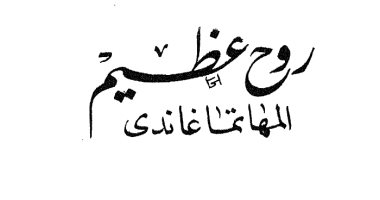 روح عظيم
المهاتما غاندى